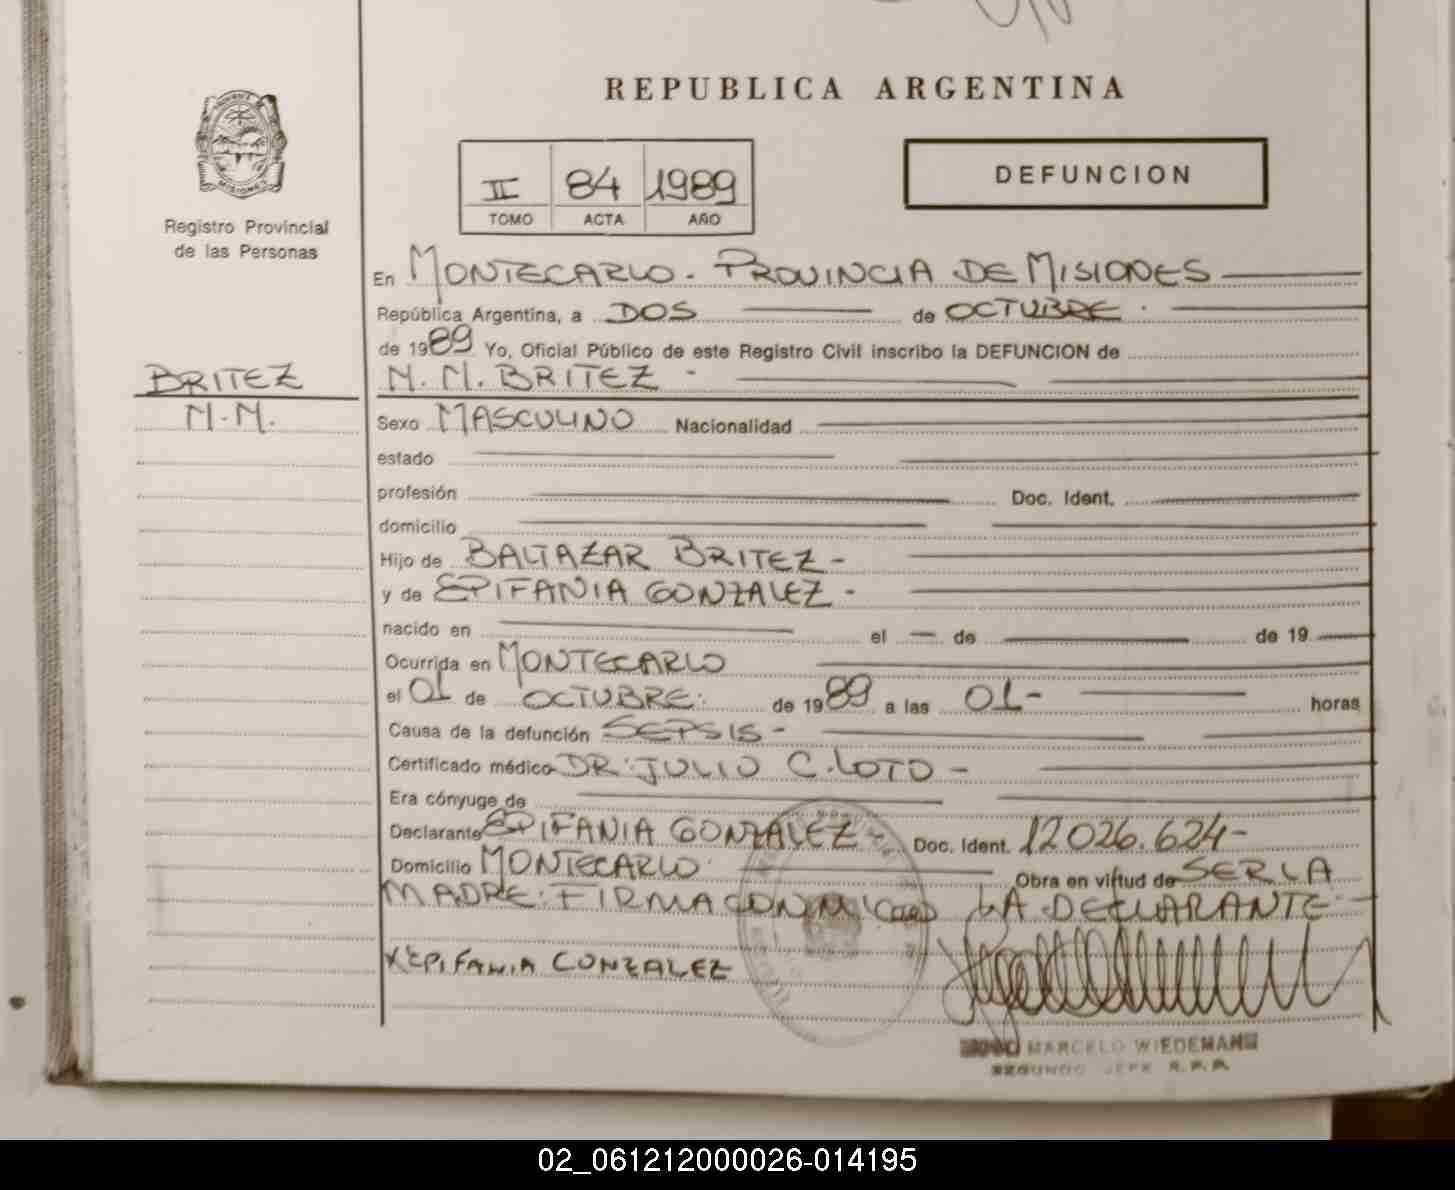 REPUBLICA ARGENTINA
II 84 1989
TOMO ACTA AÑO
DEFUNCION
MISIONES
Registro Provincial
de las Personas
En MONTECARLO. PROVINCIA DE MISIONES
República Argentina, a DOS de OCTUBRE.
de 1989 Yo, Oficial Público de este Registro Civil inscribo la DEFUNCION de
BRITEZ
N.M.
N. N. BRITEZ -
Sexo MASCULINO Nacionalidad
estado
profesión Doc. Ident.
domicilio
Hijo de BALTAZAR BRITEZ -
y de EPIFANIA GONZALEZ -
nacido en el — de de 19
Ocurrida en MONTECARLO
el 01 de OCTUBRE: de 1989 a las 01- horas
Causa de la defunción SEPSIS -
Certificado médico DR: JULIO C. LOTO -
Era cónyuge de
Declarante EPIFANIA GONZALEZ Doc. Ident. 12026.624-
Domicilio MONTECARLO. Obra en virtud de SER LA
MADRE: FIRMA CONMIGO LA DECLARANTE-
X EPIFANIA GONZALEZ
MARCELO WIEDEMANN
SEGUNDO JEFE R.P.P.
02_061212000026-014195